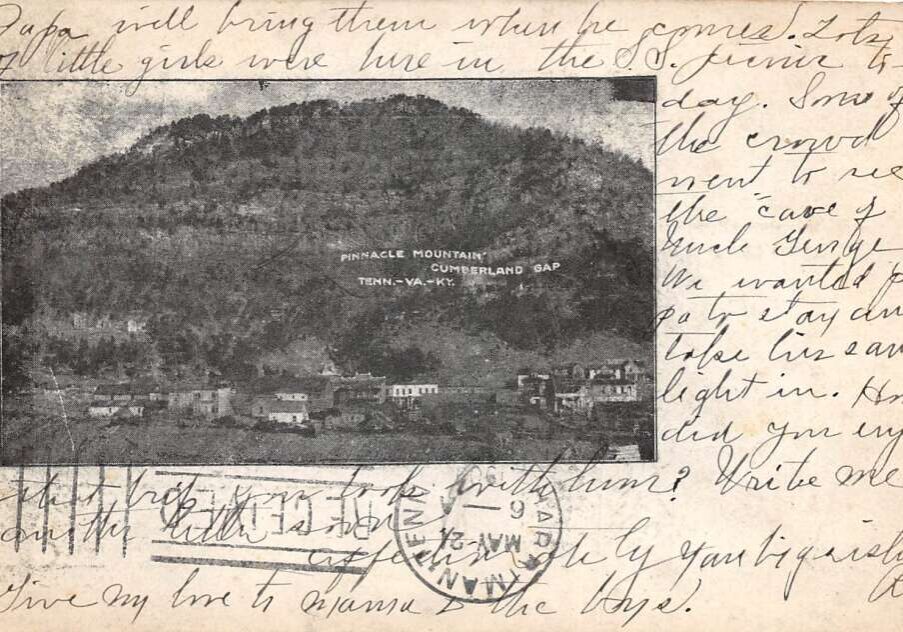 Papa will bring them when he comes. Lots
of little girls were here in the S.S. picnic to-
day. Some of
the crowd
went to see
the cave of
Uncle George
We wanted pa
pa to stay an
take his san
light in. Ho
did you enj
that trip you took with him? Write me
another little
affectionately your big
Give my love to mama & the boys.
PINNACLE MOUNTAIN
CUMBERLAND GAP
TENN.-VA.-KY.
RECEIVED
MAY 24
6
TENN